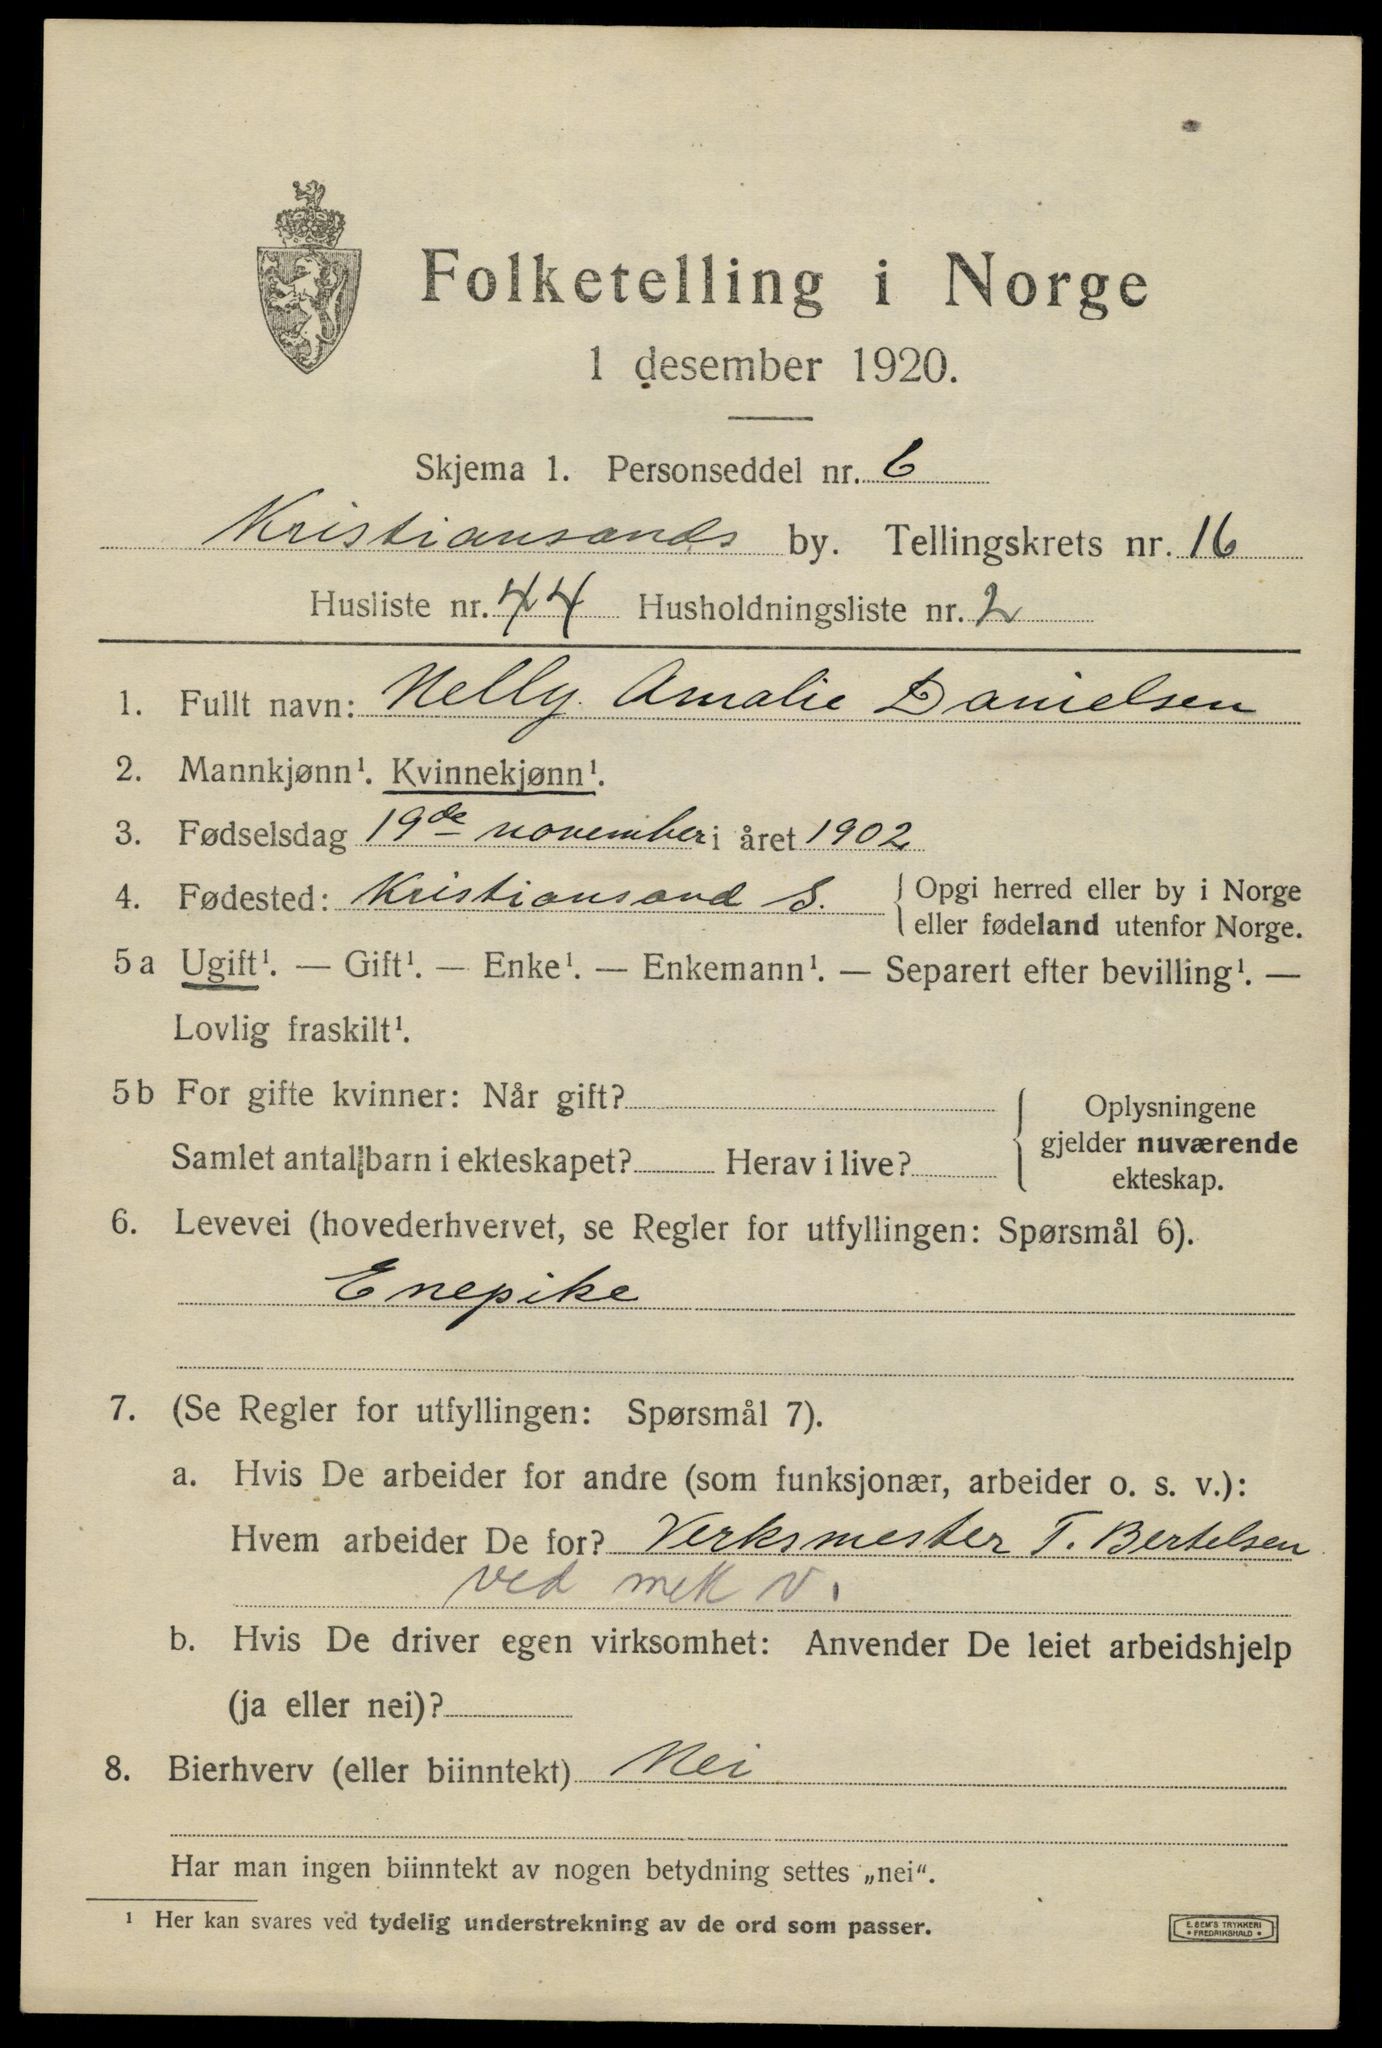 Folketelling i Norge
1 desember 1920.
Skjema 1. Personseddel nr. 6
Kristiansands by. Tellingskrets nr. 16
Husliste nr. 44 Husholdningsliste nr. 2
1. Fullt navn: Nelly Amalie Danielsen
2. Mannkjønn¹. Kvinnekjønn¹.
3. Fødselsdag 19de november i året 1902
4. Fødested: Kristiansand S. Opgi herred eller by i Norge
eller fødeland utenfor Norge.
5 a Ugift¹. — Gift¹. — Enke¹. — Enkemann¹. — Separert efter bevilling¹. —
Lovlig fraskilt¹.
5 b For gifte kvinner: Når gift?
Samlet antal barn i ekteskapet? Herav i live?
Oplysningene
gjelder nuværende
ekteskap.
6. Levevei (hovederhvervet, se Regler for utfyllingen: Spørsmål 6).
Enepike
7. (Se Regler for utfyllingen: Spørsmål 7).
a. Hvis De arbeider for andre (som funksjonær, arbeider o. s. v.):
Hvem arbeider De for? Verksmester T. Bertelsen
ved mek v.
b. Hvis De driver egen virksomhet: Anvender De leiet arbeidshjelp
(ja eller nei)?
8. Bierhverv (eller biinntekt) Nei
Har man ingen biinntekt av nogen betydning settes „nei“.
¹ Her kan svares ved tydelig understrekning av de ord som passer.
E. SEM'S TRYKKERI
• FREDRIKSHALD •